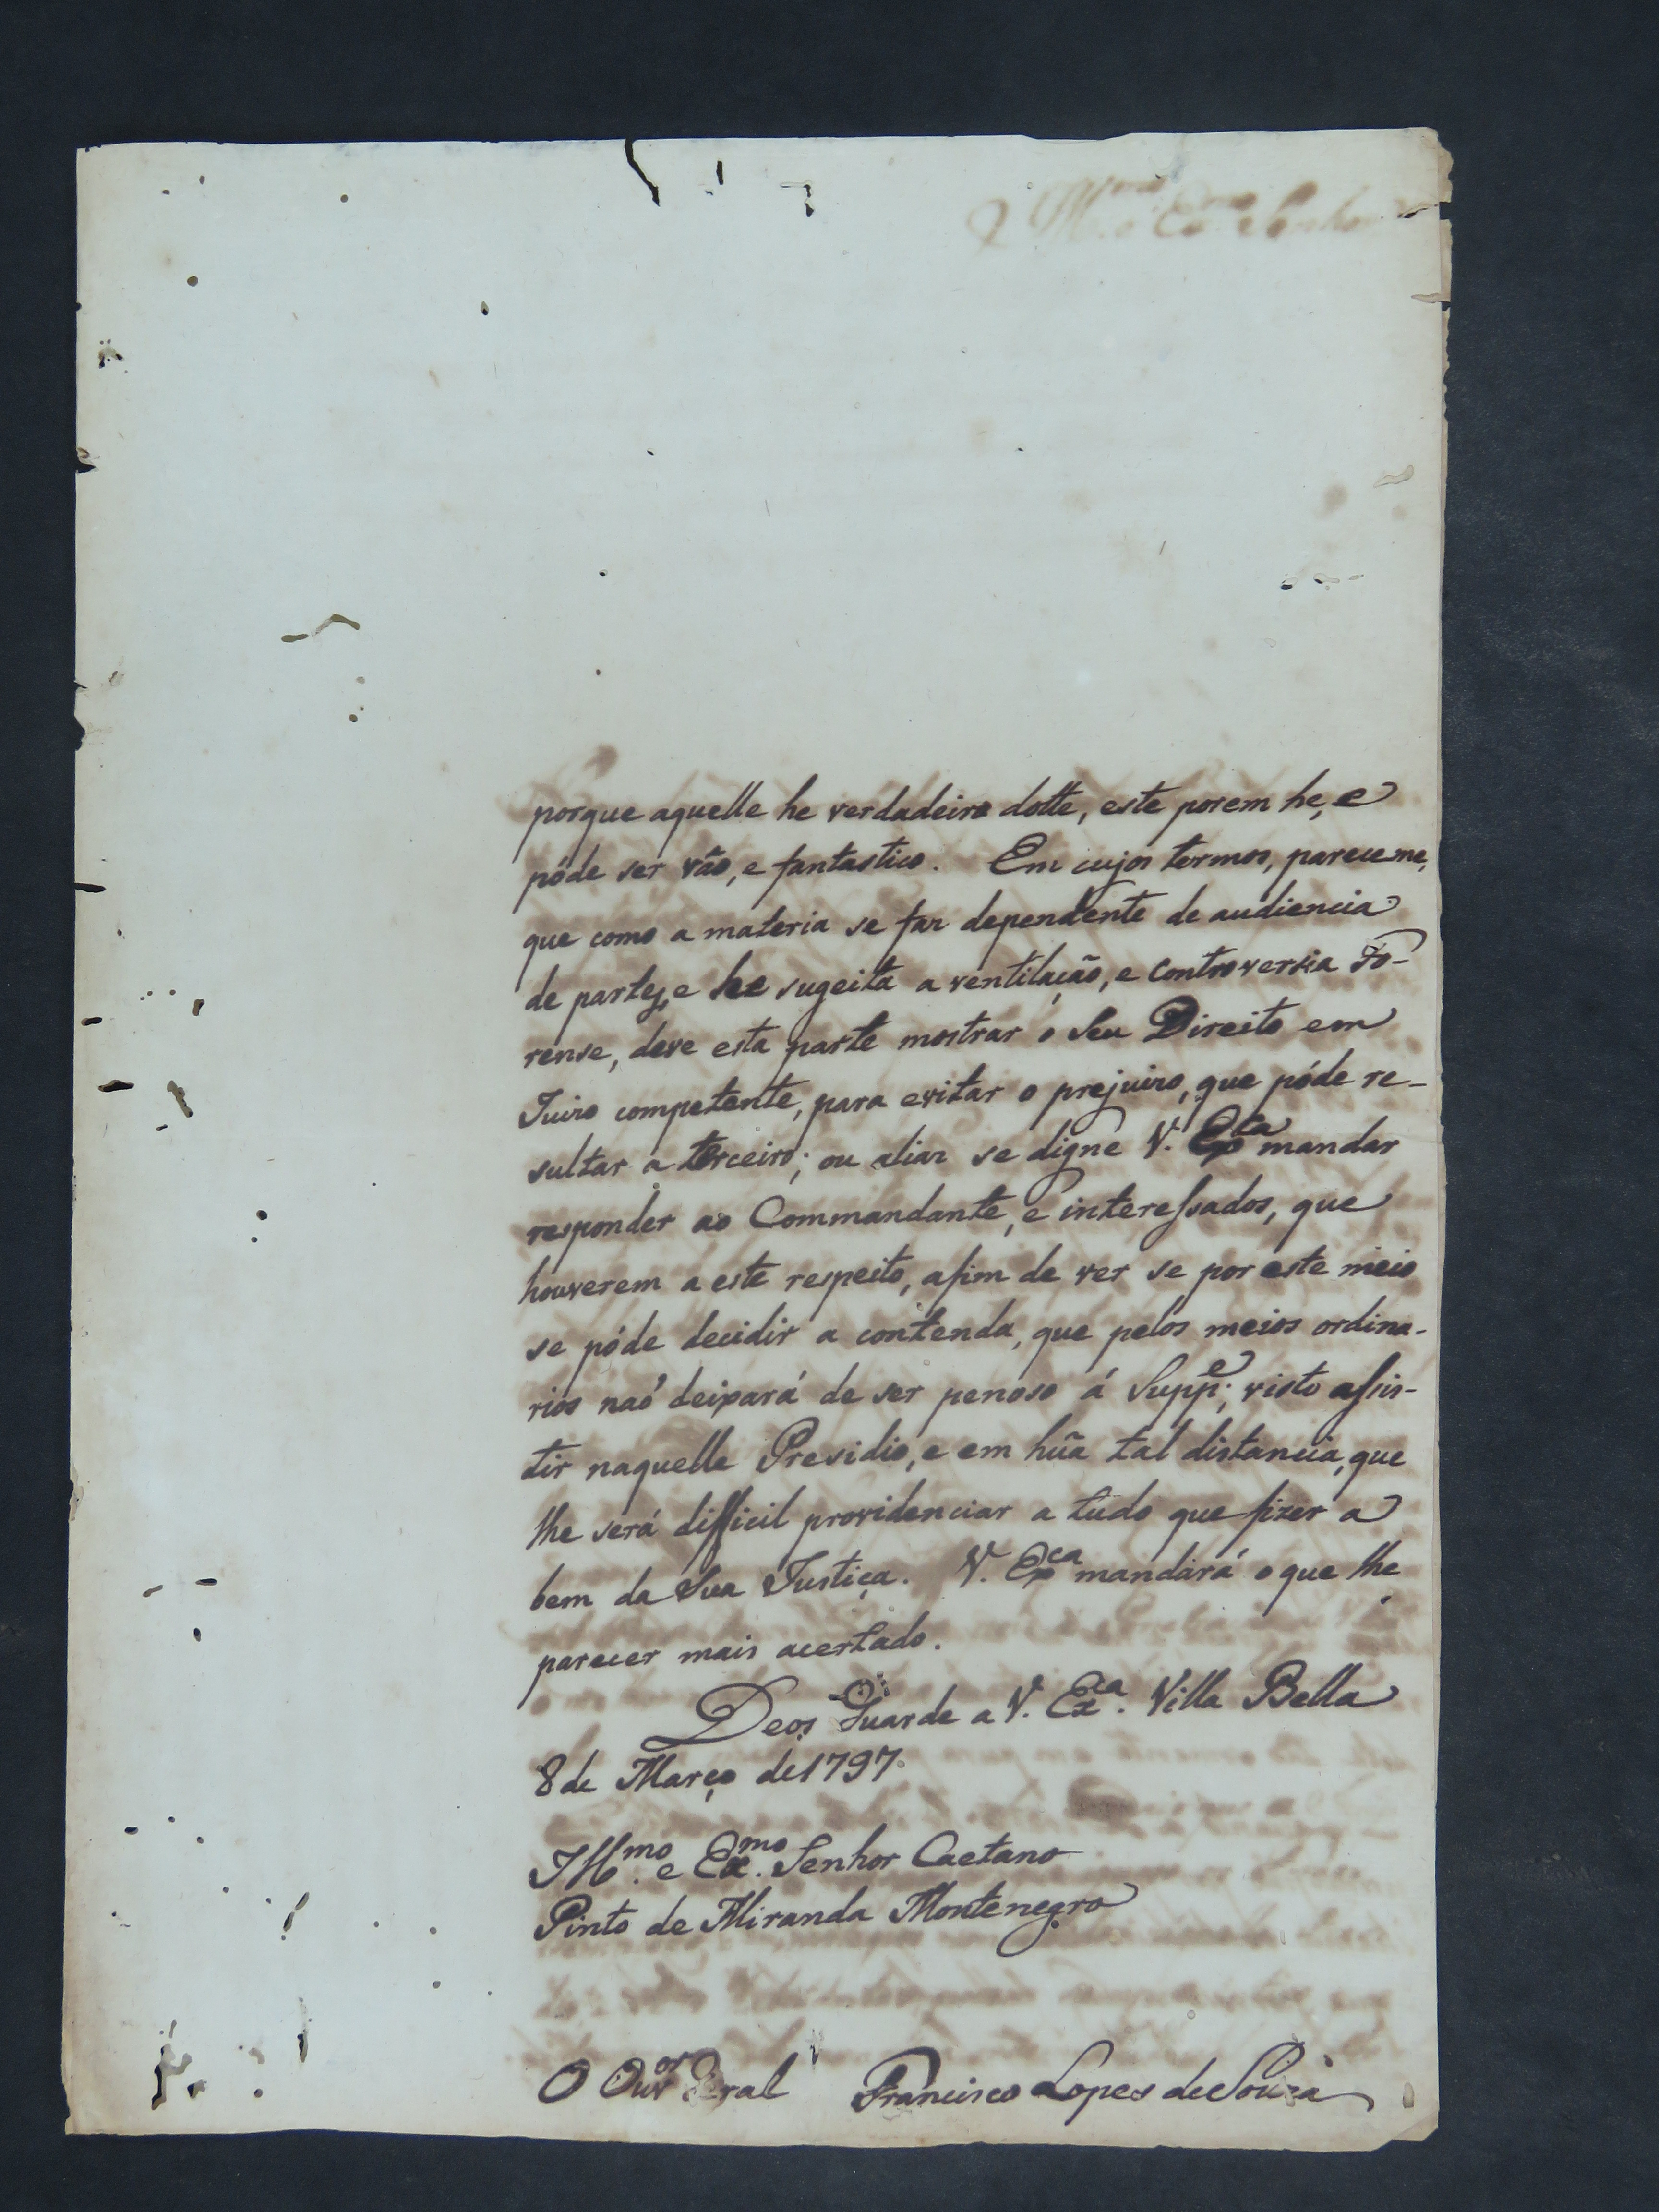 porque aquelle he verdadeiro dotte, este porem he, e
póde ser vão, e fantastico. Em cujos termos, pareceme,
que como a materia se faz dependente de audiencia
de partes, e he sugeita a ventilação, e controversia Fo-
rense, deve esta parte mostrar o seu Direito em
Juizo competente, para evitar o prejuizo, que póde re-
sultar a terceiro; ou aliaz se digne V. Exca mandar
responder ao Commandante, e interessados, que
houverem a este respeito, afim de ver se por este meio
se póde decidir a contenda, que pelos meios ordina-
rios naõ deixará de ser penoso á Suppe; visto assis-
tir naquelle Presidio, e em hũa tal distancia, que
lhe será difficil providenciar a tudo que fizer a
bem da sua Justiça. V. Exca mandará o que lhe
parecer mais acertado.
Deos Guarde a V. Exca. Villa Bella
8 de Março de 1797.
Illmo. e Exmo. Senhor Caetano
Pinto de Miranda Montenegro
O Ouvor Geral Francisco Lopes de Souza